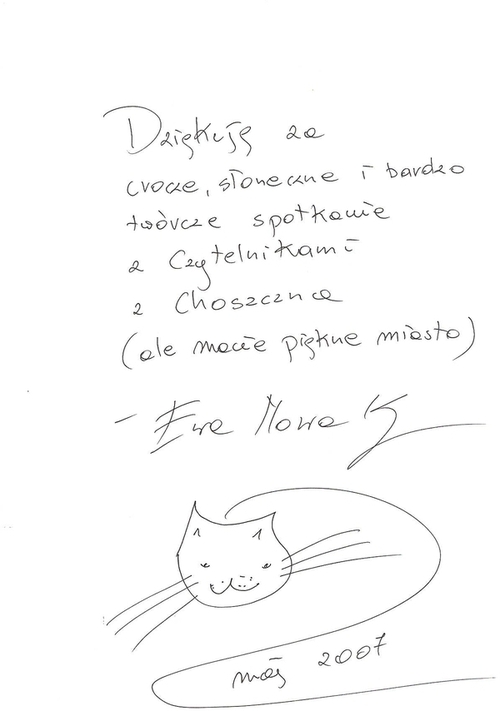 Dziękuję za
urocze, słoneczne i bardzo
twórcze spotkanie
z Czytelnikami
z Choszczna
(ale macie piękne miasto)
- Ewa Nowak
maj 2007